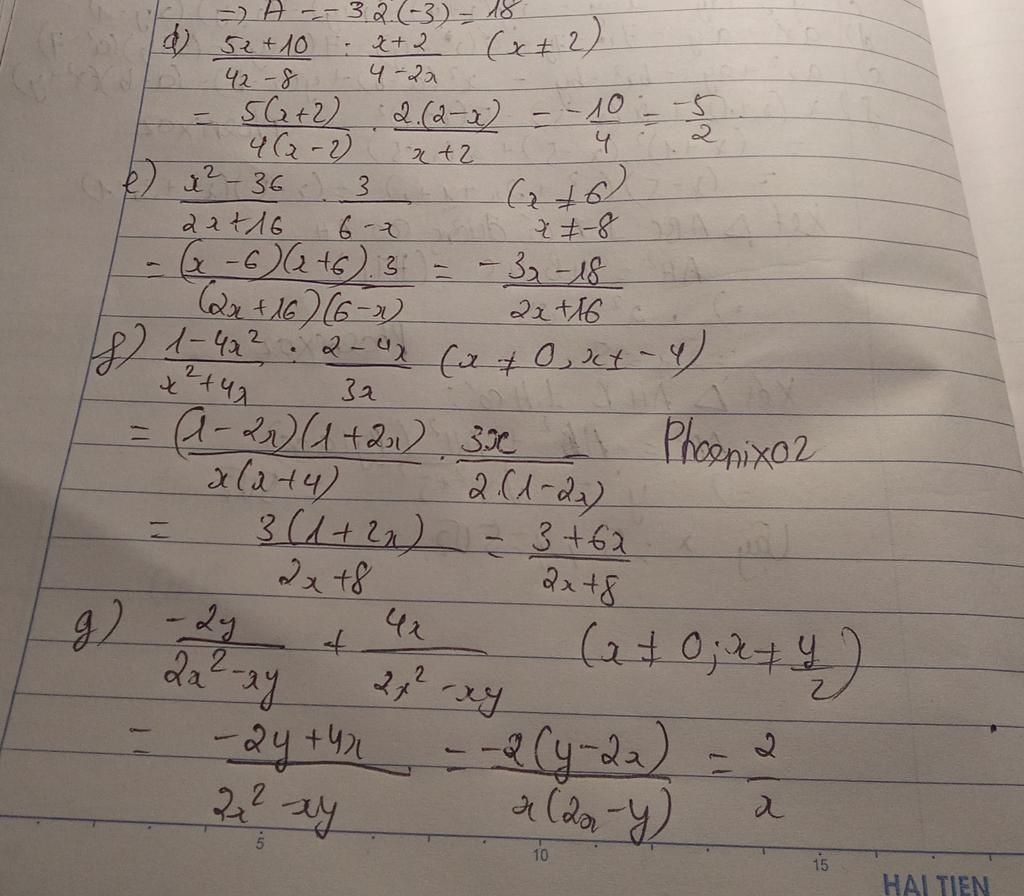 => A = -3.2.(-3) = 18
d) (5x+10)/(4x-8) : (x+2)/(4-2x) (x ≠ 2)
= 5(x+2)/4(x-2) . 2.(2-x)/(x+2) = -10/4 = -5/2
e) (x²-36)/(2x+16) . 3/(6-x) (x ≠ 6)
x ≠ -8
= (x-6)(x+6).3/(2x+16)(6-x) = (-3x-18)/(2x+16)
f) (1-4x²)/(x²+4x) : (2-4x)/3x (x ≠ 0, x ≠ -4)
= (1-2x)(1+2x)/x(x+4) . 3x/2.(1-2x) Phoenix02
= 3(1+2x)/(2x+8) = (3+6x)/(2x+8)
g) -2y/(2x²-xy) + 4x/(2x²-xy) (x ≠ 0; x ≠ y/2)
= (-2y+4x)/(2x²-xy) = -2(y-2x)/x(2x-y) = 2/x
5 10 15
HAI TIEN